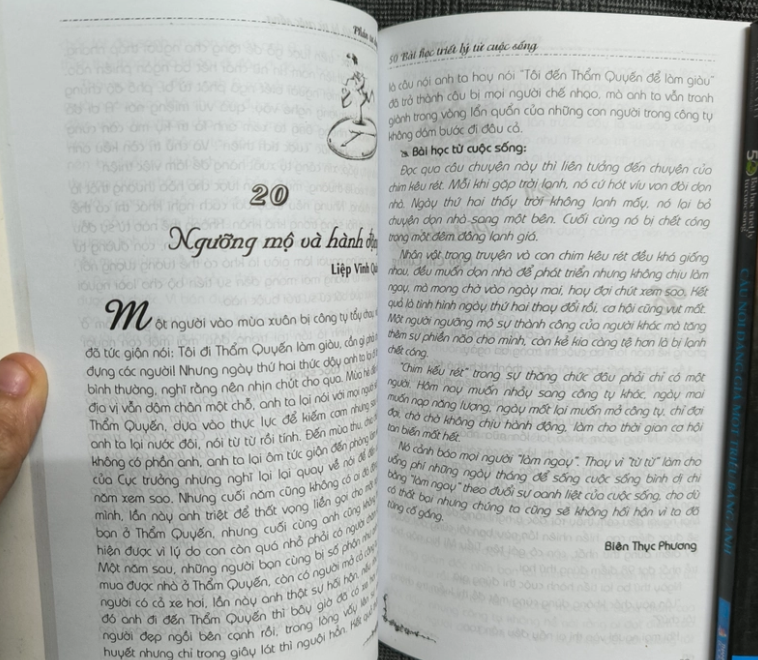 20
Ngưỡng mộ và hành
Liệp Vĩnh
Một người vào mùa xuân bị công ty
đã tức giận nói: Tôi đi Thẩm Quyến làm giàu, cần gì
đựng các người! Nhưng ngày thứ hai thức dậy anh ta lại
bình thường, nghĩ rằng nên nhịn chút cho qua. Mùa hè
địa vị vẫn dậm chân một chỗ, anh ta lại nói với mọi người
Thẩm Quyến, dựa vào thực lực để kiếm cơm nhưng
anh ta lại nước đôi, nói từ từ rồi tính. Đến mùa thu,
không có phần anh, anh ta lại ôm tức giận đến phòng
của Cục trưởng nhưng nghĩ lại lại quay về nói để
năm xem sao. Nhưng cuối năm cũng không có
mình, lần này anh triệt để thất vọng liền gọi cho
bạn ở Thẩm Quyến, nhưng cuối cùng anh cũng không
hiện được vì lý do con còn quá nhỏ phải có người
Một năm sau, những người bạn cùng bị số phận như
mua được nhà ở Thẩm Quyến, còn có người mở cả công
người có cả xe hơi, lần này anh thật sự hối hận,
đó anh đi đến Thẩm Quyến thì bây giờ đã có
người đẹp ngồi bên cạnh rồi, trong lòng
huyết nhưng chỉ trong giây lát thì nguội hẳn. Kết quả
50 Bài học triết lý từ cuộc sống
là câu nói anh ta hay nói "Tôi đến Thẩm Quyến để làm giàu"
đã trở thành câu bị mọi người chế nhạo, mà anh ta vẫn tranh
giành trong vòng lẩn quẩn của những con người trong công ty
không dám bước đi đâu cả.
Bài học từ cuộc sống:
Đọc qua câu chuyện này thì liên tưởng đến chuyện của
chim kêu rét. Mỗi khi gặp trời lạnh, nó cứ hót víu von đòi dọn
nhà. Ngày thứ hai thấy trời không lạnh mấy, nó lại bỏ
chuyện dọn nhà sang một bên. Cuối cùng nó bị chết cóng
trong một đêm đông lạnh giá.
Nhân vật trong truyện và con chim kêu rét đều khá giống
nhau, đều muốn dọn nhà để phát triển nhưng không chịu làm
ngay, mà mong chờ vào ngày mai, hay đợi chút xem sao. Kết
quả là tình hình ngày thứ hai thay đổi rồi, cơ hội cũng vụt mất.
Một người ngưỡng mộ sự thành công của người khác mà tăng
thêm sự phiền não cho mình, còn kẻ kia càng tệ hơn là bị lạnh
chết cóng.
"Chim kêu rét" trong sự thăng chức đâu phải chỉ có một
người. Hôm nay muốn nhảy sang công ty khác, ngày mai
muốn nạp năng lượng, ngày mốt lại muốn mở công ty, chỉ đợi
đợi, chờ chờ không chịu hành động, làm cho thời gian cơ hội
tan biến mất hết.
Nó cảnh báo mọi người "làm ngay". Thay vì "từ từ" làm cho
uổng phí những ngày tháng để sống cuộc sống bình dị chi
bằng "làm ngay" theo đuổi sự oanh liệt của cuộc sống, cho dù
có thất bại nhưng chúng ta cũng sẽ không hối hận vì ta đã
từng cố gắng.
Biên Thục Phương
CÂU NÓI ĐÁNG GIÁ MỘT TRIỆU BẢNG ANH